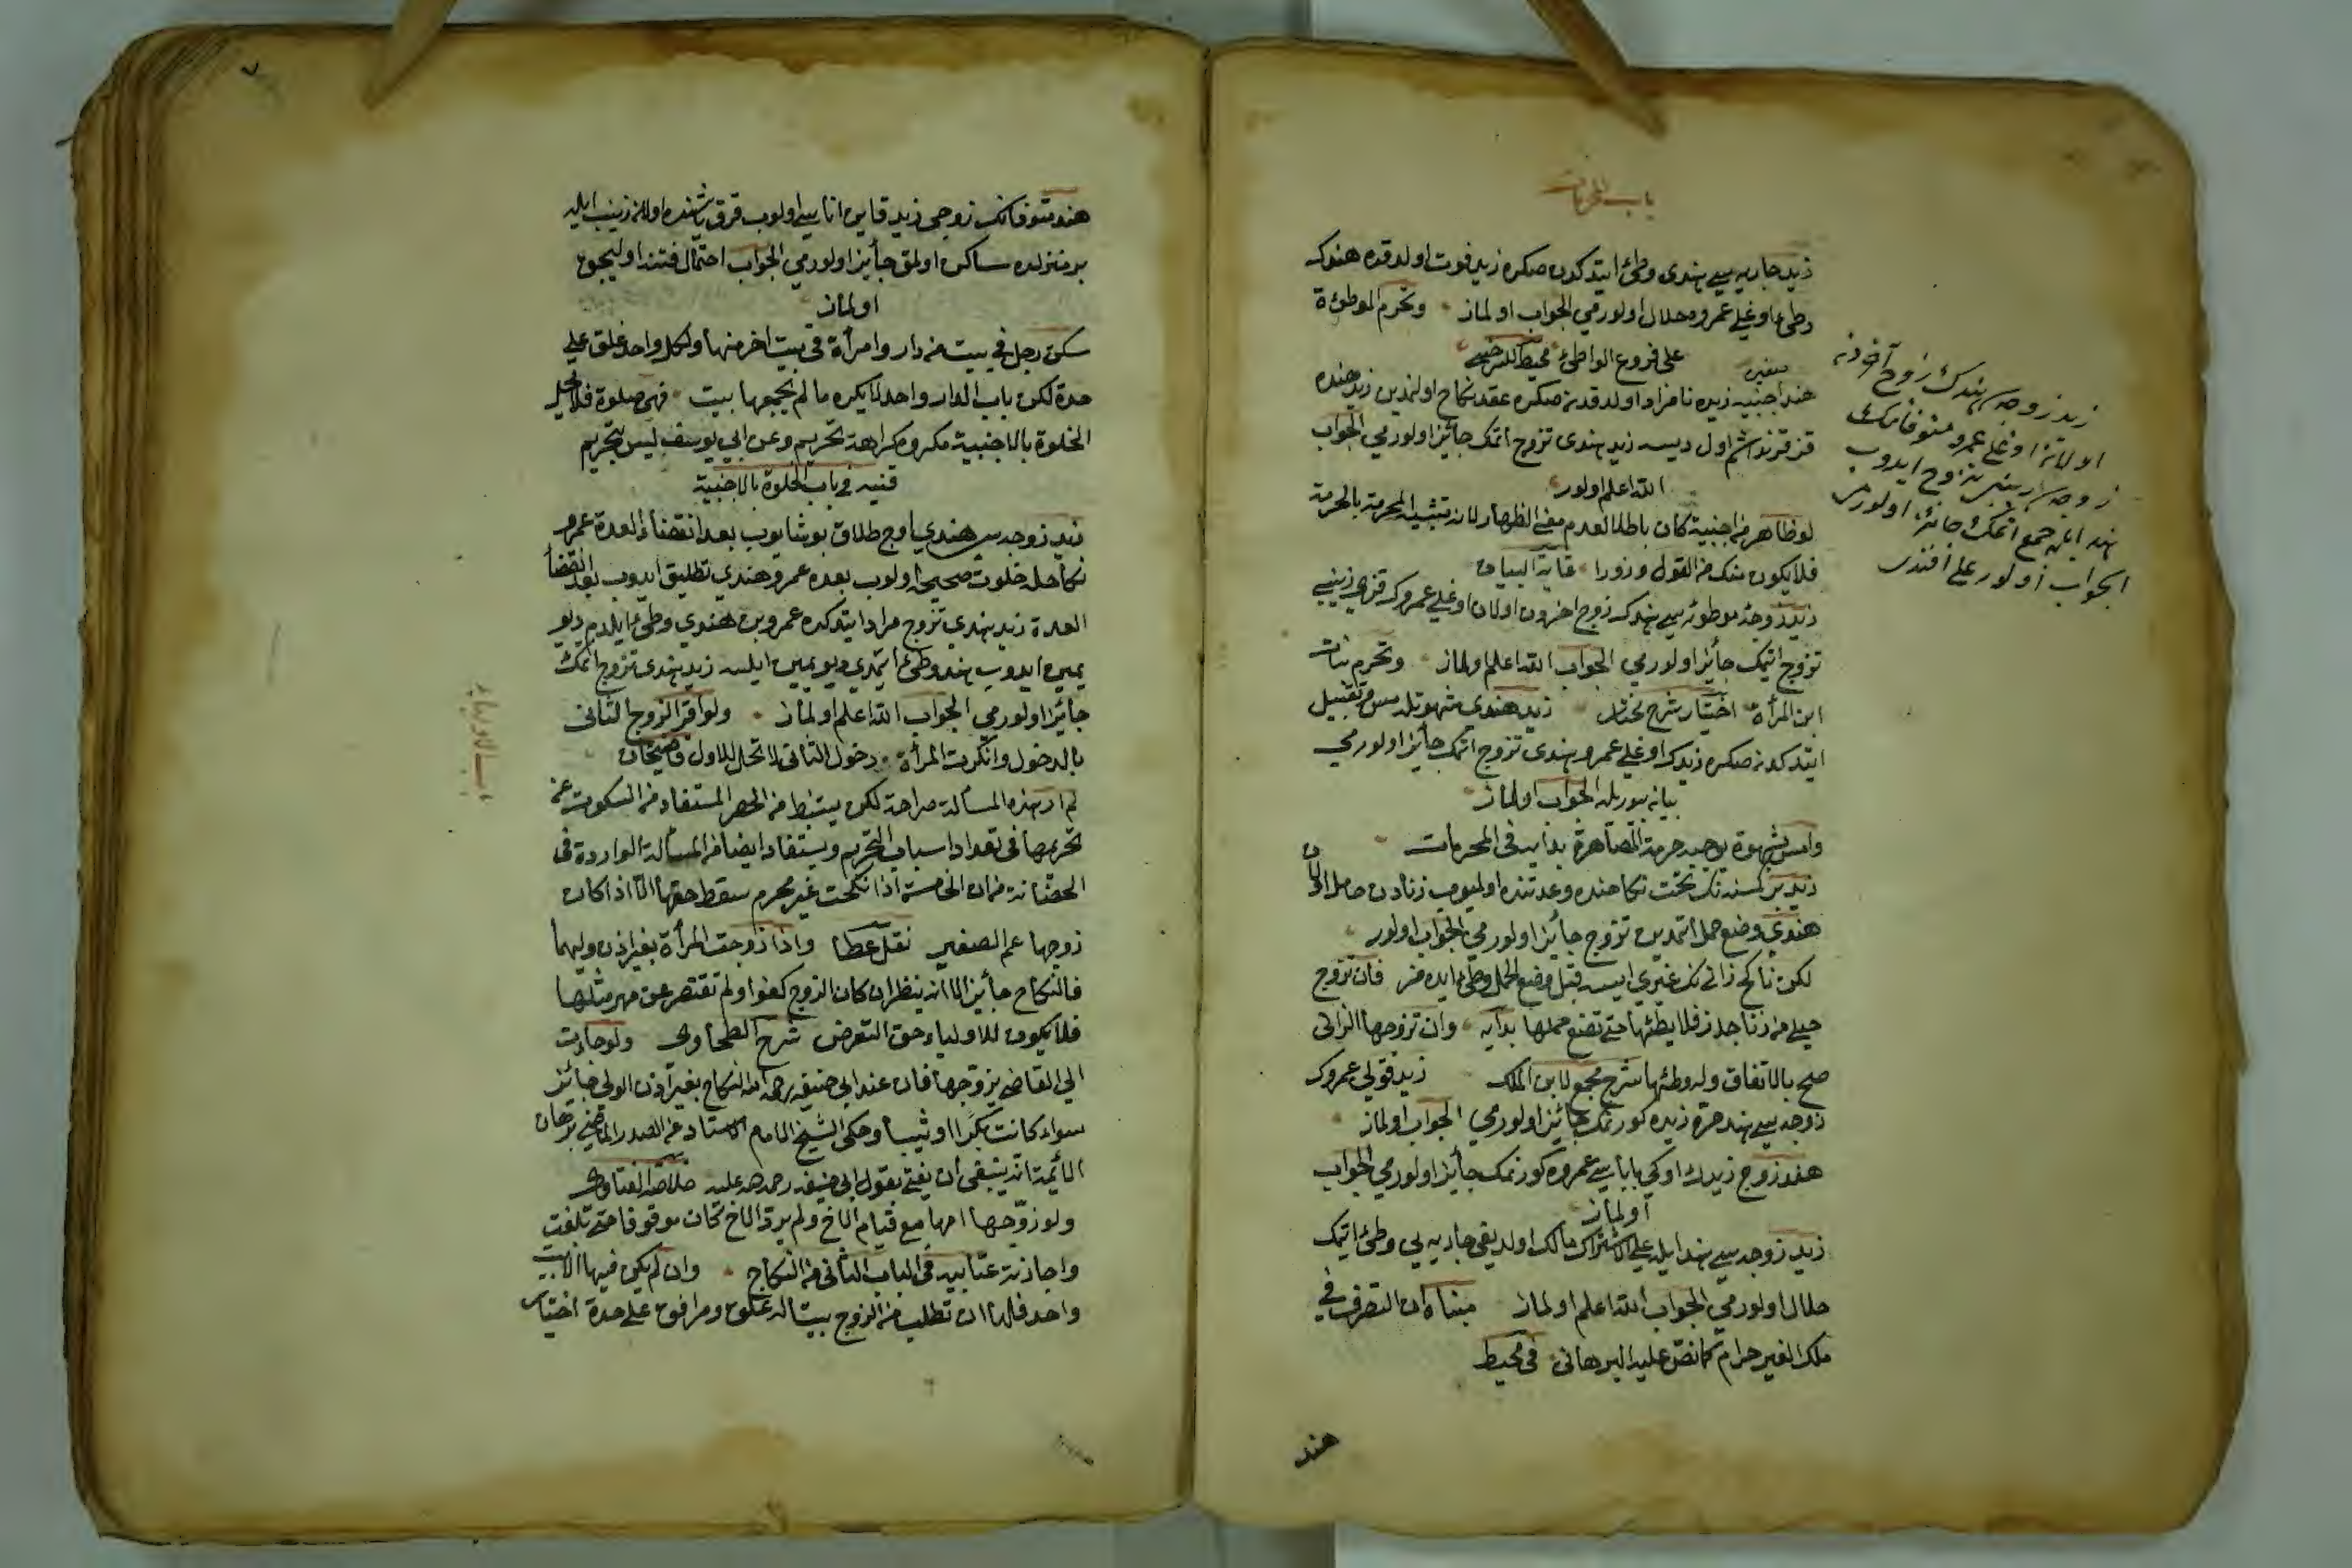 باب المحرمات
زيد جاريه سي هندى وطئ ايتدكدن صكره زيد فوت اولدقده هندك
وطئ اوغلى عمروه حلال اولورمى الجواب اولماز وتحرم الموطؤة
على فروع الواطئ محيط للسرخسى
هند اجنبيه زيده نامزد اولدقدنصكره عقد نكاح اولنمدين زيد هنده
قز قرنداشم اول ديسه زيد هندى تزوج اتمك جائز اولورمى الجواب
الله اعلم اولور
لو ظاهر من اجنبية كان باطلا لعدم معنى الظهار لانه تشبيه المحرمة بالحرمة
فلا يكون منكرا من القول وزورا غاية البيان
زيد زوجۀ موطوئه سى هندك زوج اخردن اولان اوغلى عمروك قزى زينبى
تزوج اتمك جائز اولورمى الجواب الله اعلم اولماز وتحرم بنات
ابن المرأة اختيار شرح مختار زيد هندى شهوتله مس وتقبيل
ايتدكدنصكره زيدك اوغلى عمرو هندى تزوج اتمك جائز اولورمى
بيانه بيوريله الجواب اولماز
وامس بشهوة يوجب حرمة المصاهرة بدايه فى المحرمات
زيد بر كسنه نك تحت نكاحنده وعدتنده اولميوب زنادن حامل اولان
هندى وضع حمل اتمدين تزوج جائز اولورمى الجواب اولور
لكن ناكح زانى نك غيرى ايسه قبل وضع الحمل وطئ ايده مز فان تزوج
حبلى من زنا جاز فلا يطئها حتى تضع حملها بدايه وان تزوجها الزانى
صح بالاتفاق وله وطئها شرح مجمع لابن الملك زيد قولى عمروك
زوجه سى هند حره زيده كورنمك جائز اولورمى الجواب اولماز
هند زوج زيدك اوكى باباسى عمروه كورنمك جائز اولورمى الجواب
اولماز
زيد زوجه سى هند ايله على الاشتراك مالك اولديغى جاريه يى وطئ اتمك
حلال اولورمى الجواب الله اعلم اولماز مبناه ان التصرف فى
ملك الغير حرام كما نص عليه البرهانى فى محيط
هند
زيد زوجه سى هندك زوج آخردن
اولان اوغلى عمرو متوفانك
زوجه سى زينبى تزوج ايدوب
هند ايله جمع اتمك جائز اولورمى
الجواب اولور على افندى
هند متوفانك زوجى زيد قاين اناسى اولوب قرق ياشنده اولان زينب ايله
بر منزلده ساكن اولمق جائز اولورمى الجواب احتمال فتنه اوليجق
اولماز
سكن رجل فى بيت من دار وامرأة فى بيت اخر منها ولكل واحد غلق على
حدة لكن باب الدار واحد لا يكره ما لم يجمعهما بيت فهى خلوة فلا تحل
الخلوة بالاجنبية مكروه كراهة تحريم وعن ابي يوسف ليس بتحريم
قنيه فى باب الخلوة بالاجنبية
زيد زوجه سى هندى اوج طلاق بوشايوب بعد انقضاء العدة عمرو
نكاحله خلوت صحيحه اولوب بعده عمرو هندى تطليق ايدوب بعد انقضاء
العدة زيد هندى تزوج مراد ايتدكده عمرو بن هندى وطئ ايلدم ديو
يمين ايدوب هند وطئ اتمدى ديو يمين ايلسه زيد هندى تزوج اتمك
جائز اولورمى الجواب الله اعلم اولماز ولو اقر الزوج الثانى
بالدخول وانكرت المرأة دخول الثانى لا تحل للاول قاضيخان
لم ار هذه المسألة صراحة لكن يستنبط من الحصر المستفاد من السكوت عن
تحريمها فى تعداد اسباب التحريم ويستفاد ايضا من المسألة الواردة فى
الحضانة من ان الحاضنة اذا نكحت غير محرم سقط حقها الا اذا كان
زوجها عم الصغير نقل عطا واذا زوجت المرأة بغير اذن وليها
فالنكاح جائز الا انه ينظر ان كان الزوج كفوا ولم تقتصر عن مهر مثلها
فلا يكون للاولياء حق التعرض شرح الطحاوى ولو جاءت
الى القاضى يزوجها فان عند ابى حنيفه رحمه الله النكاح بغير اذن الولى جائز
سواء كانت بكرا او ثيبا وحكى الشيخ الامام الاستاد عن الصدر الماضى برهان
الائمة انه ينبغى ان يفتى بقول ابى حنيفه رحمه الله عليه خلاصة الفتاوى
ولو زوجها امها مع قيام الاخ ولم يرد الاخ كان موقوفا حتى بلغت
واجازته عتابيه فى الباب الثانى من النكاح وان لم يكن فيها الا بيت
واحد فلها ان تطلب من الزوج بيتا له غلق ومرافق على حدة اختيار
باب الاولياء
٧